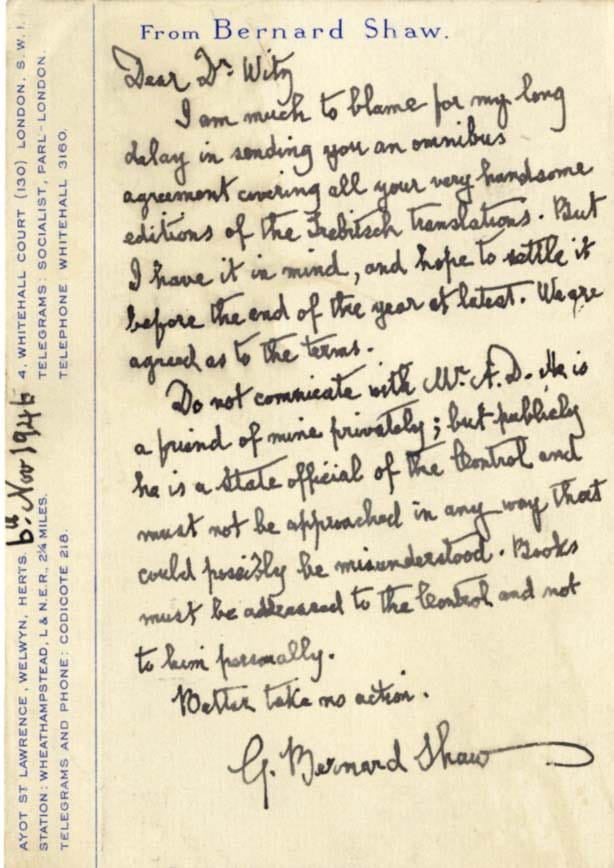 From Bernard Shaw.
4, WHITEHALL COURT (130) LONDON, S.W.1.
TELEGRAMS: SOCIALIST, PARL-LONDON.
TELEPHONE WHITEHALL 3160.
AYOT ST LAWRENCE, WELWYN, HERTS.
STATION: WHEATHAMPSTEAD, L & N.E.R., 2¼ MILES.
TELEGRAMS AND PHONE: CODICOTE 218.
6th Nov 1946
Dear Dr Witz
I am much to blame for my long
delay in sending you an omnibus
agreement covering all your very handsome
editions of the Trebitsch translations. But
I have it in mind, and hope to settle it
before the end of the year at latest. We are
agreed as to the terms.
Do not comnicate with Mr. A.D. He is
a friend of mine privately; but publicly
he is a State official of the Control and
must not be approached in any way that
could possibly be misunderstood. Books
must be addressed to the Control and not
to him personally.
Better take no action.
G. Bernard Shaw